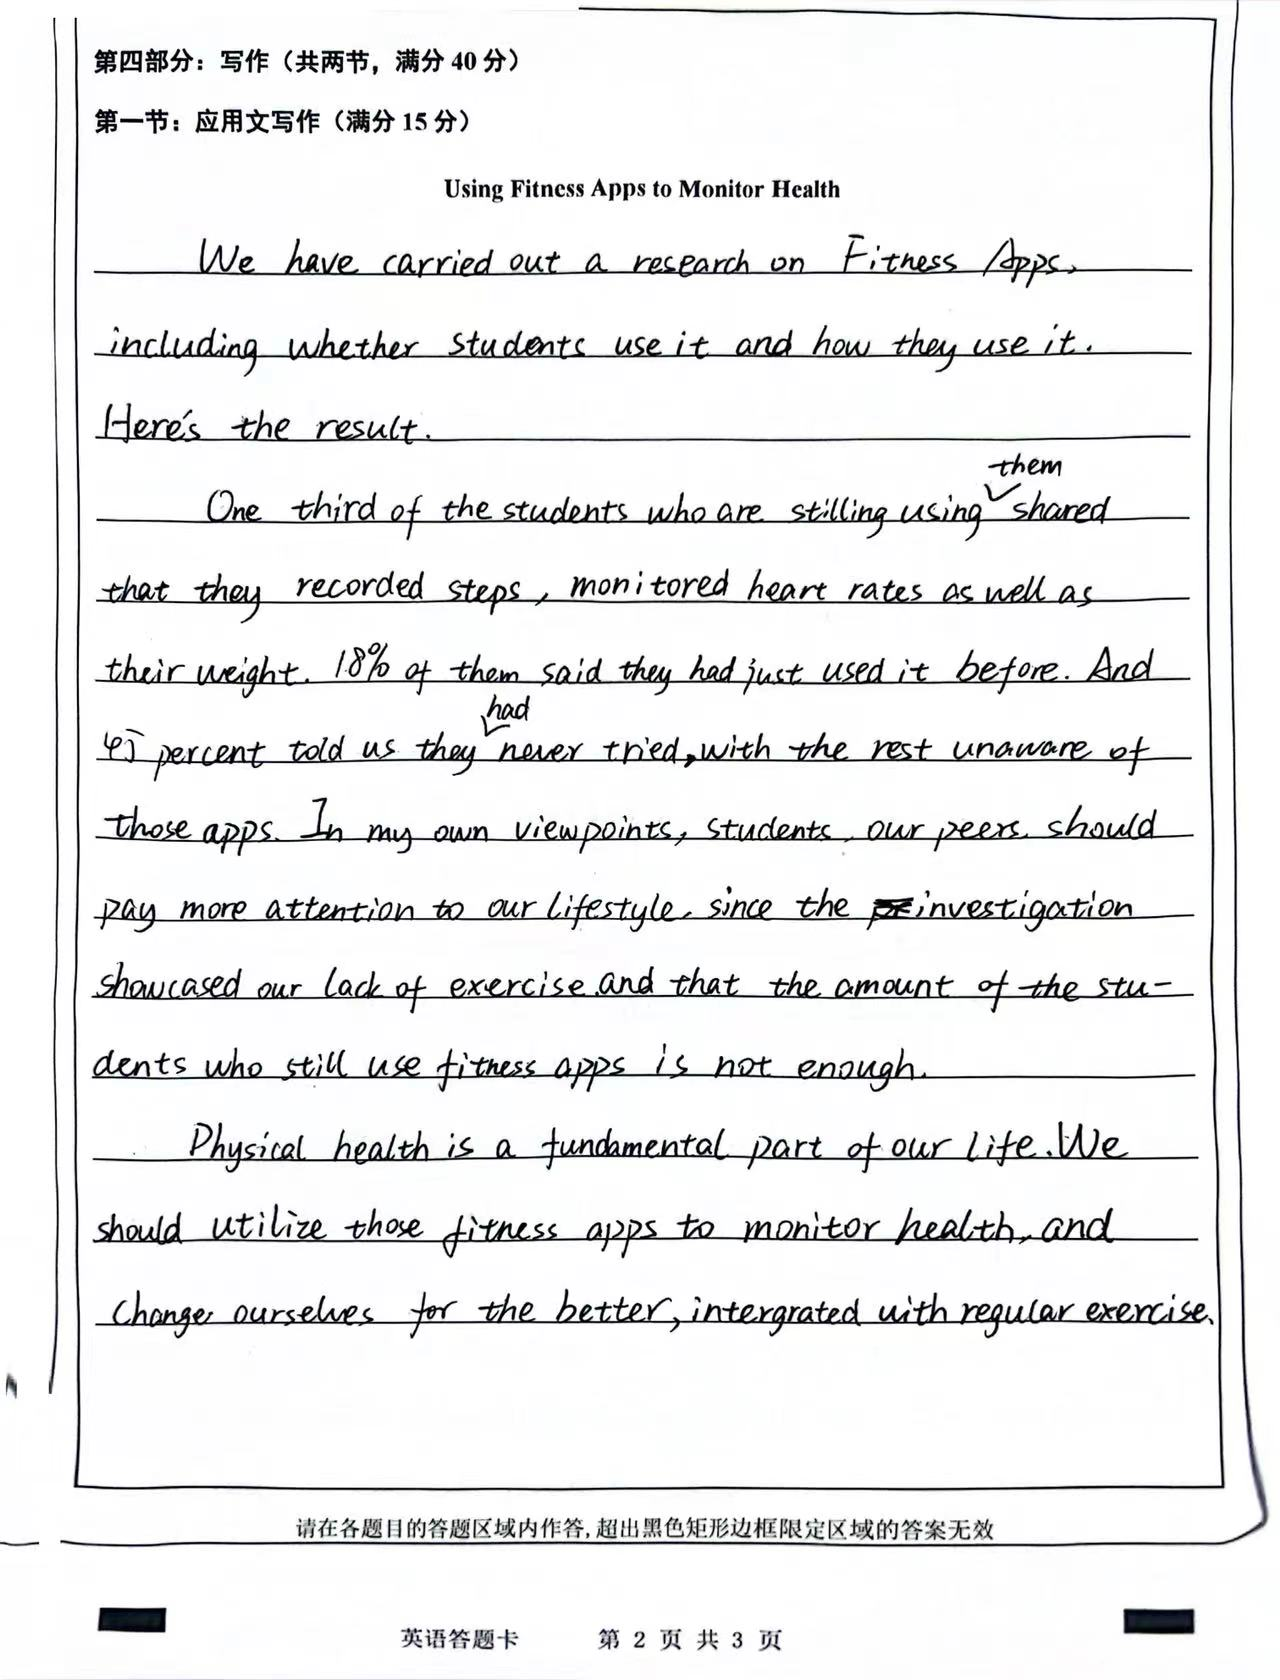 第四部分：写作（共两节，满分 40 分）
第一节：应用文写作（满分 15 分）
Using Fitness Apps to Monitor Health
We have carried out a research on Fitness Apps,
including whether students use it and how they use it.
Here's the result.
them
One third of the students who are stilling using shared
that they recorded steps, monitored heart rates as well as
their weight. 18% of them said they had just used it before. And
had
45 percent told us they never tried, with the rest unaware of
those apps. In my own viewpoints, students, our peers, should
pay more attention to our lifestyle, since the investigation
showcased our lack of exercise and that the amount of the stu-
dents who still use fitness apps is not enough.
Physical health is a fundamental part of our life. We
should utilize those fitness apps to monitor health, and
change ourselves for the better, intergrated with regular exercise.
请在各题目的答题区域内作答，超出黑色矩形边框限定区域的答案无效
英语答题卡 第 2 页 共 3 页